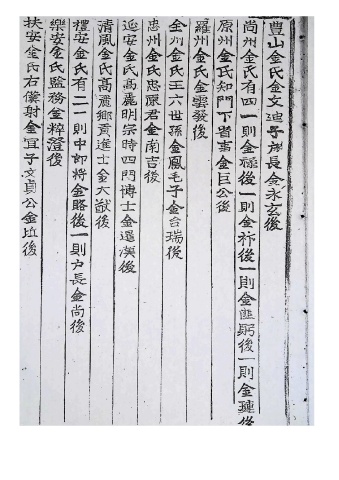 豊山金氏金文迪子戶長金永玄後
尙州金氏有四一則金祿後一則金祚後一則金匪躬後一則金璉後
原州金氏知門下省事金巨公後
羅州金氏金雲發後
全州金氏王六世孫金鳳毛子金台瑞後
忠州金氏忠原君金南吉後
延安金氏高麗明宗時四門博士金暹漢後
淸風金氏高麗鄕貢進士金大猷後
禮安金氏有二一則中郎將金賂後一則戶長金尙後
樂安金氏監務金粹澄後
扶安金氏右僕射金宜子文貞公金坵後